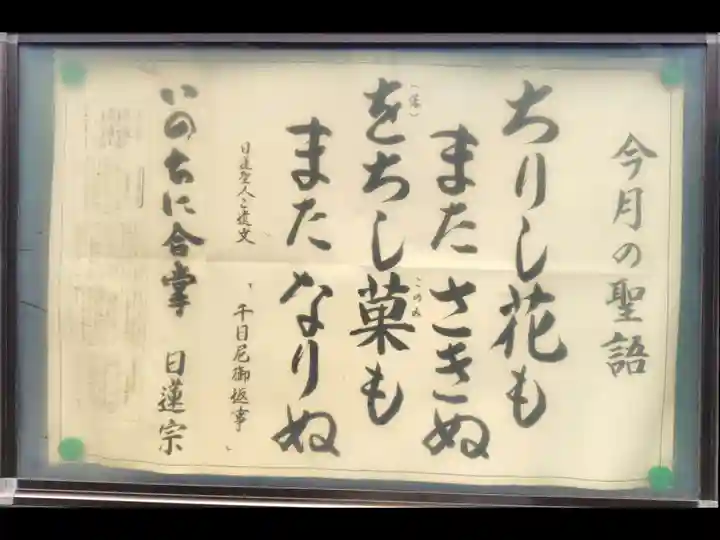 今月の聖語
ちりし花も
またさきぬ
をちし菓も
(落)
このみ
またなりぬ
日蓮聖人ご遺文
「千日尼御返事」
いのちに合掌 日蓮宗